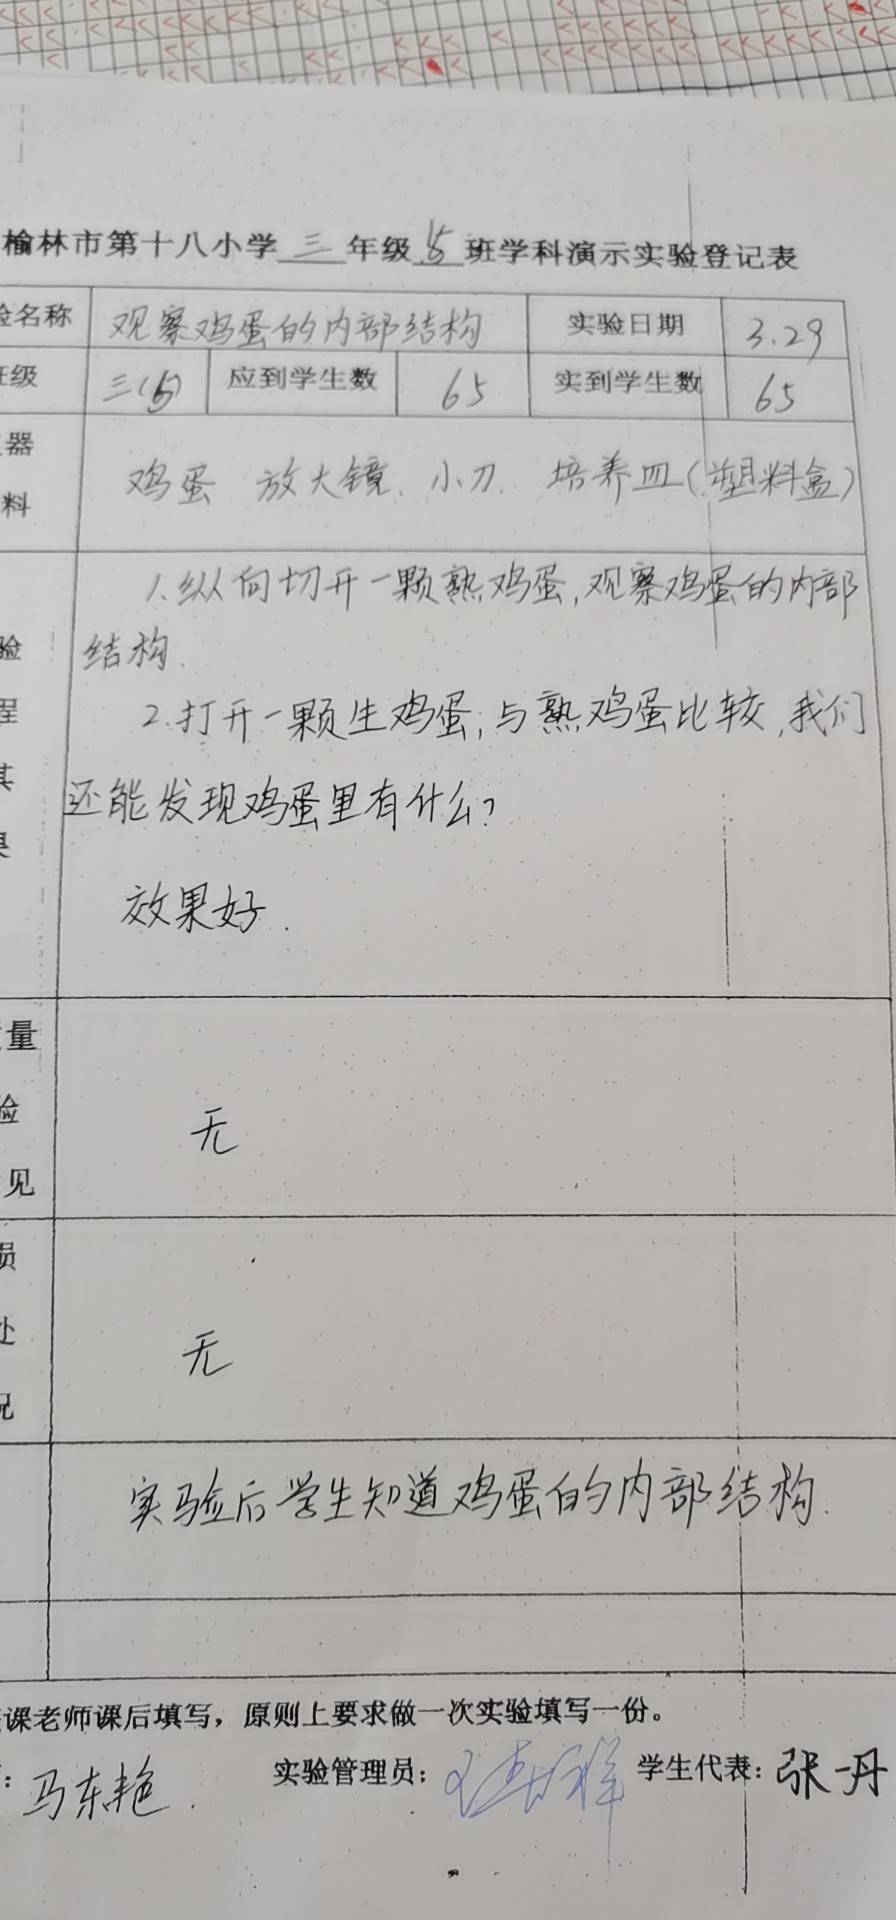 榆林市第十八小学 三 年级 5 班学科演示实验登记表
验名称 观察鸡蛋的内部结构 实验日期 3.29
班级 三(5) 应到学生数 65 实到学生数 65
器
料
鸡蛋 放大镜、小刀、培养皿(塑料盒)
1.纵向切开一颗熟鸡蛋,观察鸡蛋的内部
结构.
2.打开一颗生鸡蛋,与熟鸡蛋比较,我们
还能发现鸡蛋里有什么?
效果好.
验
程
其
果
量
验
见
无
损
处
况
无
实验后学生知道鸡蛋的内部结构.
课老师课后填写，原则上要求做一次实验填写一份。
：马东艳. 实验管理员： 学生代表：张丹